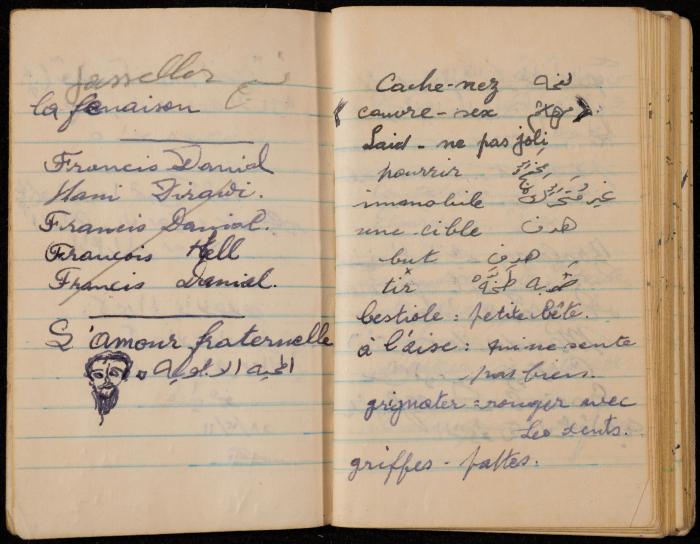 la fenaison
Francis Danial
Hani Dirgwi.
Francis Danial.
François Hell
Francis Danial.
L'amour fraternelle
المحبة الاخوية
Cache-nez لفحة
couvre-sex
Laid - ne pas joli
pourrir
immobile غير متحرك
une cible هدف
but هدف
tir ضربة
bestiole : petite bête.
à l'aise : qui ne sente
pas bien.
grignoter : ronger avec
les dents.
griffes - pattes.